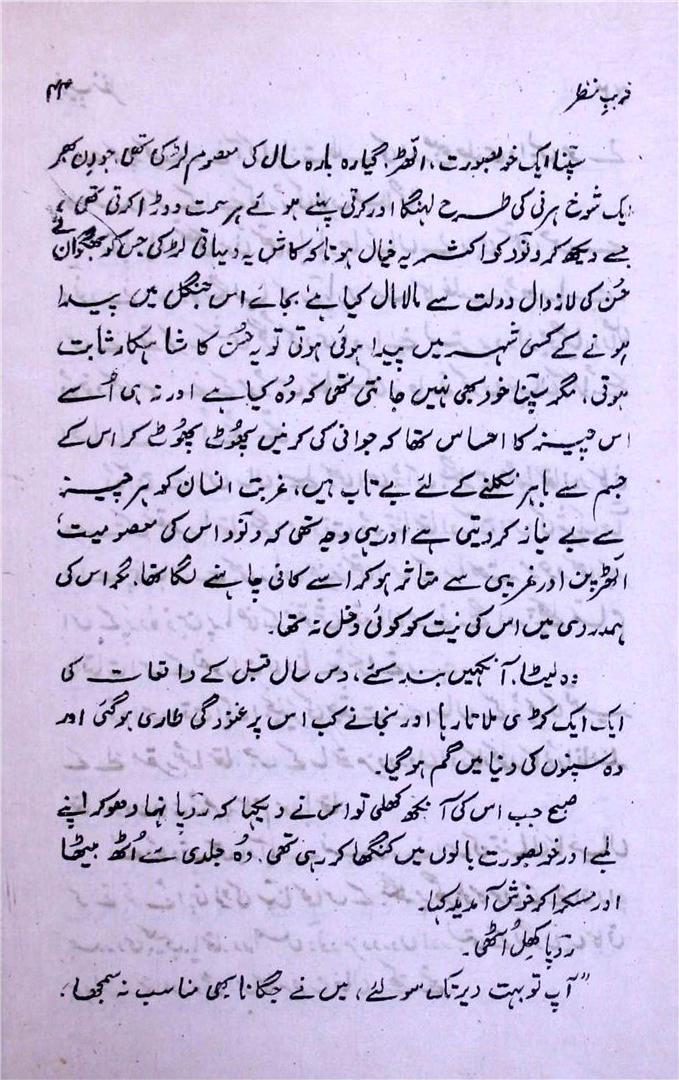 فریبِ نظر
سپنا ایک خوبصورت، الھڑ، گیارہ بارہ سال کی معصوم لڑکی تھی، جو دن بھر
ایک شوخ ہرنی کی طرح لہنگا اور کرتی پہنے ہوئے ہر سمت دوڑا کرتی تھی،
جسے دیکھ کر ونود کو اکثر یہ خیال ہوتا کہ کاش یہ دیہاتی لڑکی جس کو بھگوان نے
حُسن کی لازوال دولت سے مالا مال کیا ہے بجائے اس جنگل میں پیدا
ہونے کے کسی شہر میں پیدا ہوئی ہوتی تو یہ حُسن کا شاہکار ثابت
ہوتی، مگر سپنا خود بھی نہیں جانتی تھی کہ وُہ کیا ہے اور نہ ہی اُسے
اس چیز کا احساس تھا کہ جوانی کی کرنیں پھوٹ پھوٹ کر اس کے
جسم سے باہر نکلنے کے لئے بے تاب ہیں، غربت انسان کو ہر چیز
سے بے نیاز کر دیتی ہے اور یہی وجہ تھی کہ ونود اس کی معصومیت،
الھڑپن اور غریبی سے متاثر ہو کر اسے کافی چاہنے لگا تھا۔ مگر اس کی
ہمدردی میں اس کی نیت کو کوئی دخل نہ تھا۔
وہ لیٹا، آنکھیں بند کئے، دس سال قبل کے واقعات کی
ایک ایک کڑی ملاتا رہا اور نجانے کب اس پر غنودگی طاری ہو گئی اور
وہ سپنوں کی دنیا میں گم ہو گیا۔
صبح جب اس کی آنکھ کھلی تو اس نے دیکھا کہ روپا نہا دھو کر اپنے
لمبے اور خوبصورت بالوں میں کنگھا کر رہی تھی۔ وُہ جلدی سے اُٹھ بیٹھا
اور مسکرا کر خوش آمدید کہا۔
روپا کھِل اُٹھی۔
"آپ تو بہت دیر تک سو لئے، میں نے جگانا بھی مناسب نہ سمجھا،